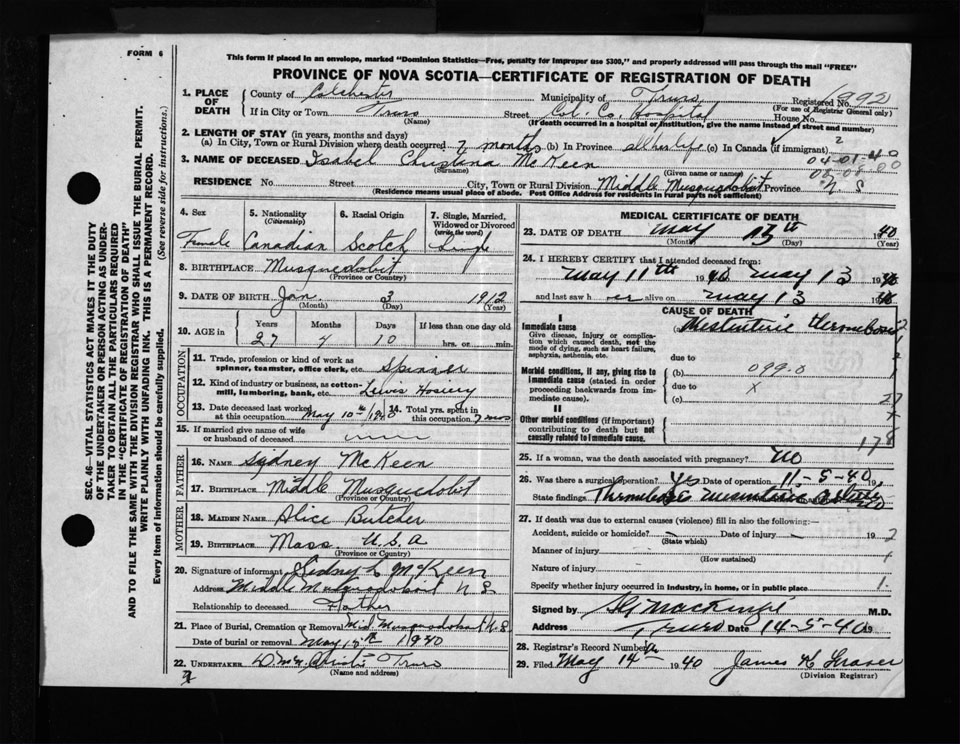 FORM 6
This form if placed in an envelope, marked "Dominion Statistics—Free, penalty for improper use $300," and properly addressed will pass through the mail "FREE"
PROVINCE OF NOVA SCOTIA—CERTIFICATE OF REGISTRATION OF DEATH
1. PLACE OF DEATH
County of Colchester Municipality of Truro Registered No. 992
(For use of Registrar General only)
If in City or Town Truro Street Col. Co. Hospital House No.
(Name) (If death occurred in a hospital or institution, give the name instead of street and number)
2. LENGTH OF STAY (in years, months and days)
(a) In City, Town or Rural Division where death occurred 7 months (b) In Province all her life (c) In Canada (if immigrant)
3. NAME OF DECEASED Isabel Christana McKeen 04-01-40
(Surname) (Given name or names)
RESIDENCE No. Street City, Town or Rural Division Middle Musquodoboit Province N S
(Residence means usual place of abode. Post Office Address for Residents in rural parts not sufficient)
4. Sex
Female
5. Nationality
(Citizenship)
Canadian
6. Racial Origin
Scotch
7. Single, Married, Widowed or Divorced
(write the word)
Single
8. BIRTHPLACE Musquodobit
(Province or Country)
9. DATE OF BIRTH Jan. 3 1912
(Month) (Day)
10. AGE in Years Months Days If less than one day old
27 4 10 hrs. or min.
OCCUPATION
11. Trade, profession or kind of work as spinner, teamster, office clerk, etc. Spinner
12. Kind of industry or business, as cotton-mill, lumbering, bank, etc. Lewis Hosiery
13. Date deceased last worked at this occupation May 10th/1940 14. Total yrs. spent in this occupation 7 mos
15. If married give name of wife or husband of deceased
FATHER
16. NAME Sydney McKeen
17. BIRTHPLACE Middle Musquodobit
(Province or Country)
MOTHER
18. MAIDEN NAME Alice Butcher
19. BIRTHPLACE Mass. U.S.A
(Province or Country)
20. Signature of informant Sidney L McKeen
Address Middle Musquodoboit N S
Relationship to deceased Father
21. Place of Burial, Cremation or Removal Mid. Musquodoboit N.S
Date of burial or removal May 15th 1940
22. UNDERTAKER Truro
(Name and address)
MEDICAL CERTIFICATE OF DEATH
23. DATE OF DEATH May 13th 1940
(Month) (Day) (Year)
24. I HEREBY CERTIFY that I attended deceased from:
May 11th 1940 May 13 1940
and last saw her alive on May 13 1940
CAUSE OF DEATH
I
Immediate cause
Give disease, injury or complication which caused death, not the mode of dying, such as heart failure, asphyxia, asthenia, etc.
Mesenteric thrombosis
due to
Morbid conditions, if any, giving rise to immediate cause (stated in order proceeding backwards from immediate cause).
(b) 099.0
due to X
(c) 27
II
Other morbid conditions (if important) contributing to death but not causally related to immediate cause.
178
25. If a woman, was the death associated with pregnancy? no
26. Was there a surgical operation? Yes Date of operation 11-5-40
State findings Thrombosis
27. If death was due to external causes (violence) fill in also the following:—
Accident, suicide or homicide? Date of injury 19
(State which)
Manner of injury
(How sustained)
Nature of injury
Specify whether injury occurred in industry, in home, or in public place
Signed by SG Mackenzie M.D.
Address Truro Date 14-5-40
28. Registrar's Record Number
29. Filed May 14 1940 James H
(Division Registrar)
SEC. 46—VITAL STATISTICS ACT MAKES IT THE DUTY OF THE UNDERTAKER OR PERSON ACTING AS UNDERTAKER TO OBTAIN ALL THE PARTICULARS REQUIRED IN THE "CERTIFICATE OF REGISTRATION OF DEATH" AND TO FILE THE SAME WITH THE DIVISION REGISTRAR WHO SHALL ISSUE THE BURIAL PERMIT.
WRITE PLAINLY WITH UNFADING INK. THIS IS A PERMANENT RECORD.
Every item of information should be carefully supplied. (See reverse side for instructions.)